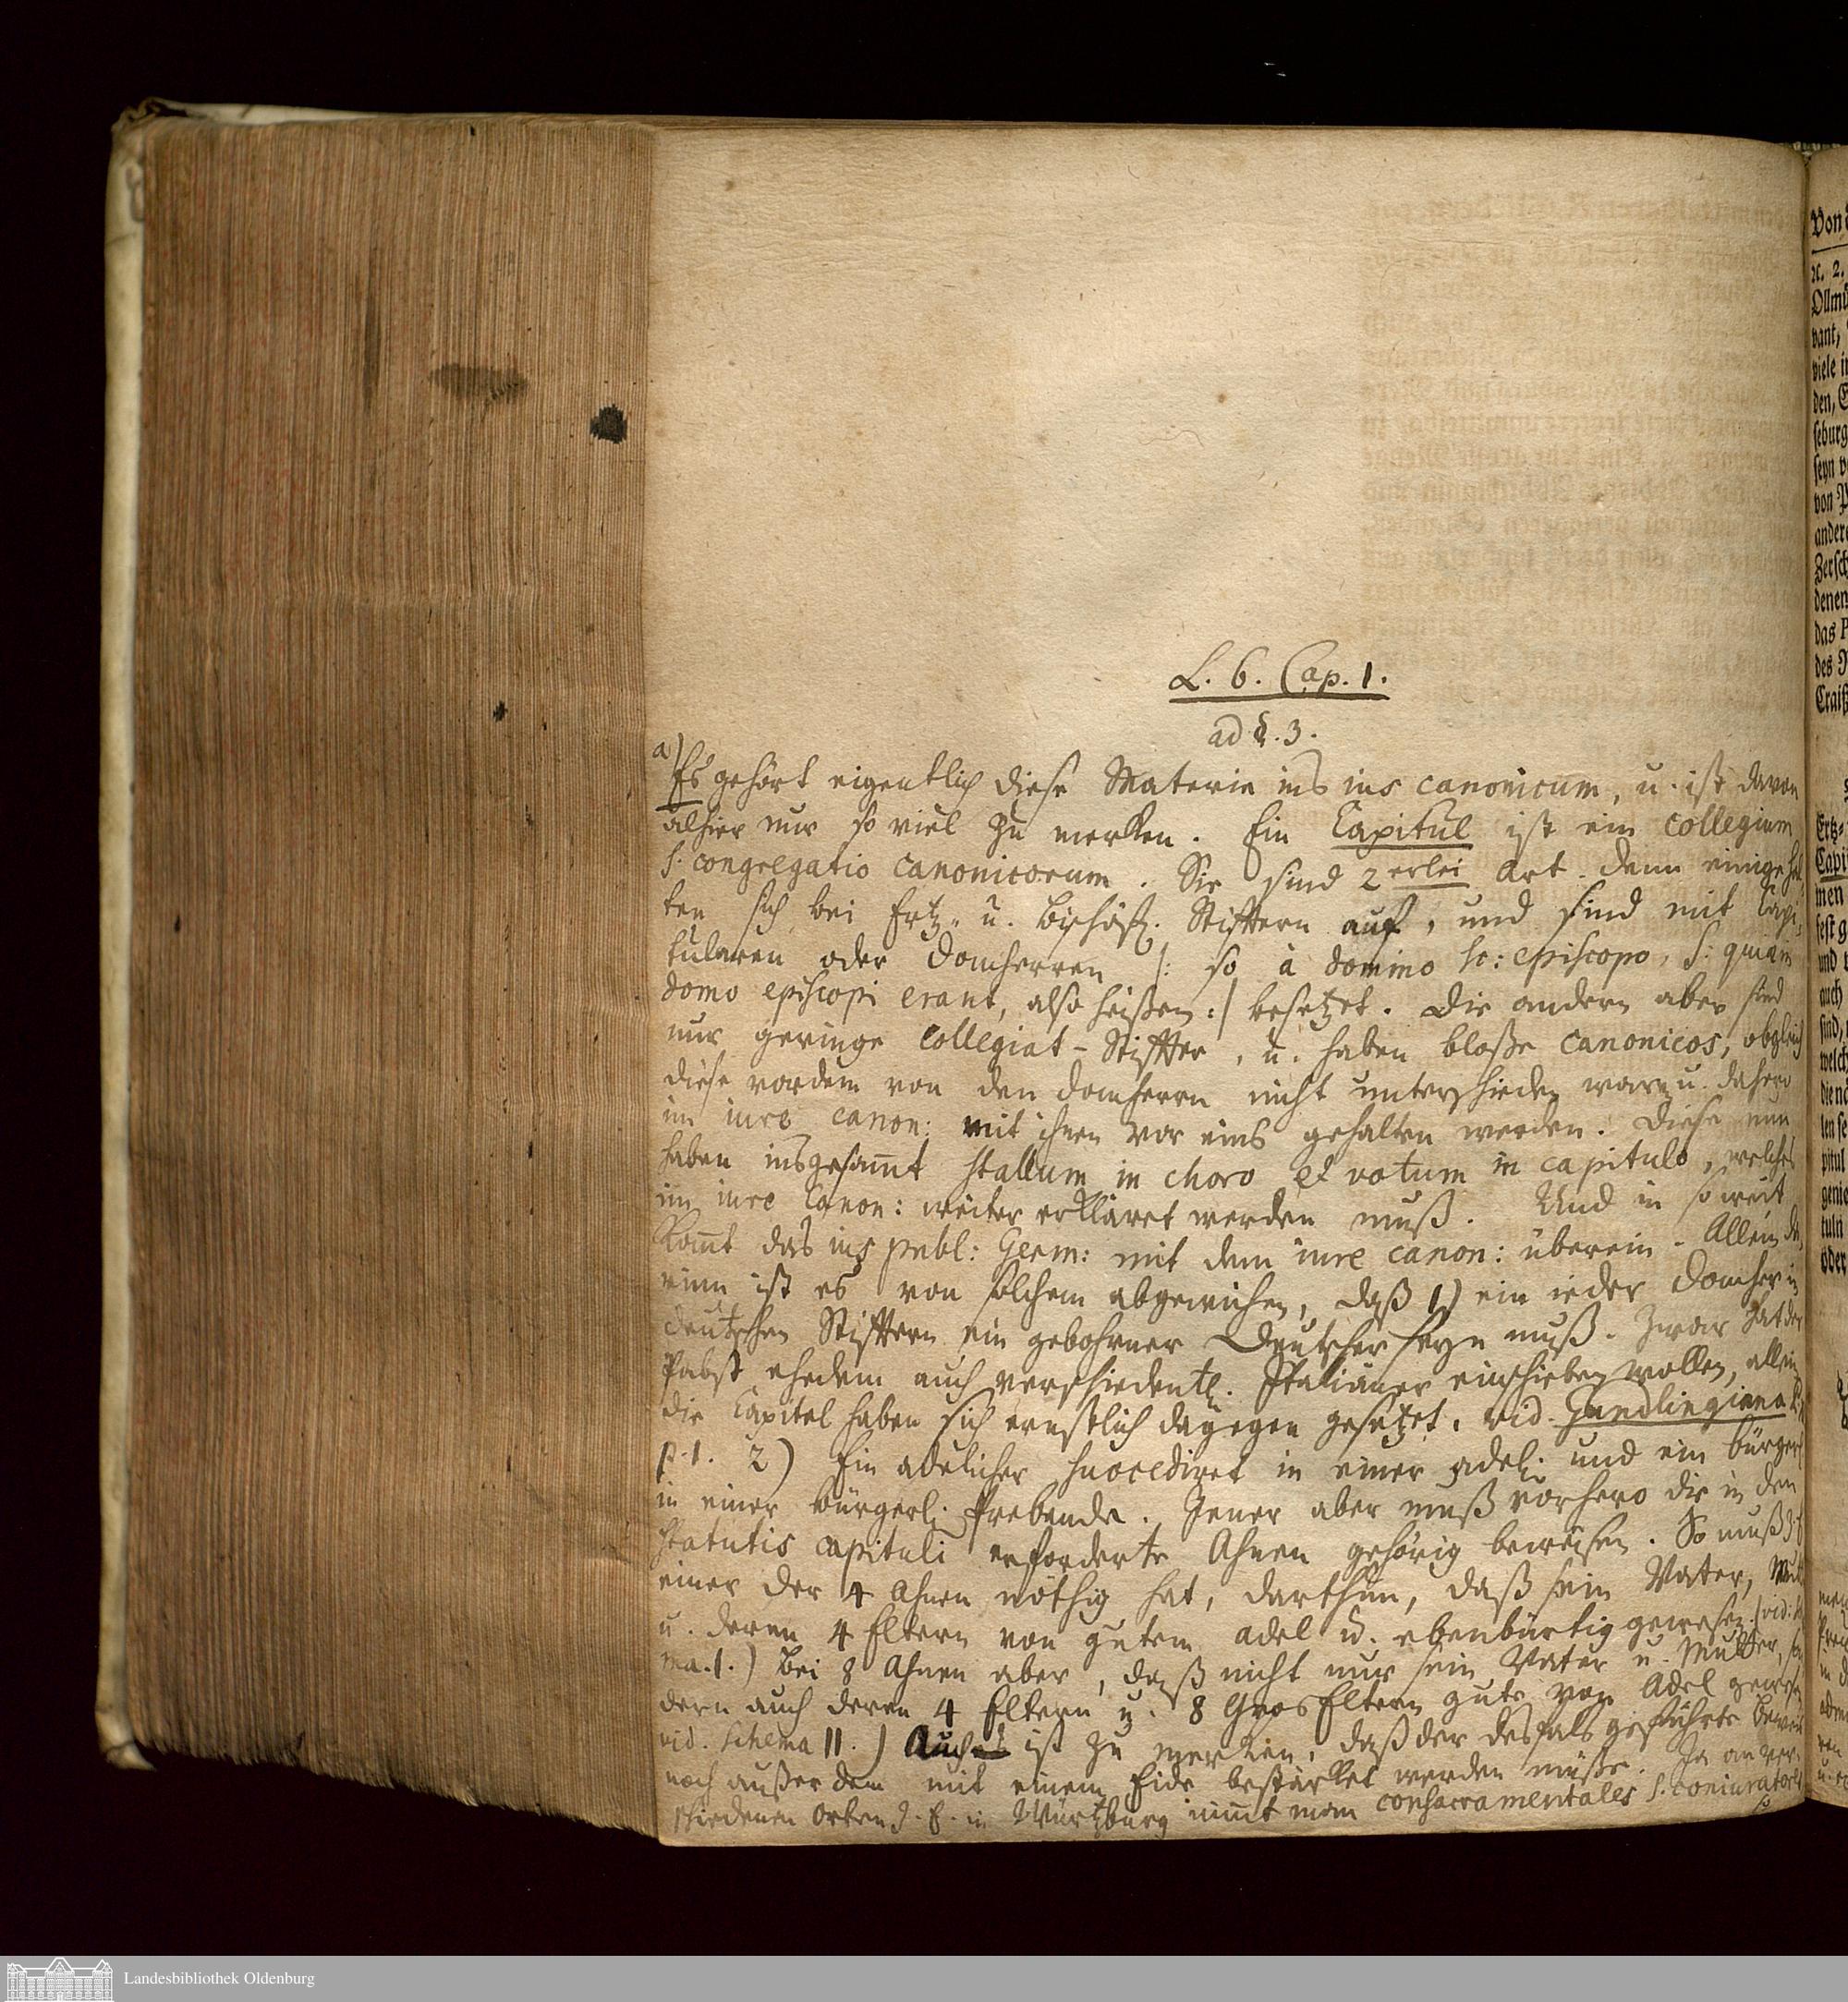 L. 6. Cap. 1.
ad §. 3.
a) Es gehört eigentlich diese Materie ins ius canonicum, u. ist davon
alhier nur so viel zu merken. Ein Capitul ist ein collegium
s. congregatio canonicorum. Sie sind 2erlei Art. denn einige hal-
ten sich bei Ertz- u. Bischöfl. Stifftern auf, und sind mit Capi-
tularen oder Domherren |: so à domino sc: episcopo, s. quia in
domo episcopi erant, also heißen :| besetzet. Die andern aber sind
nur geringe Collegiat-Stiffter, u. haben bloße canonicos, obgleich
diese vordem von den Domherrn nicht unterschieden warn u. dahero
im iure canon: mit ihnen vor eins gehalten werden. Diese nun
haben insgesamt stallum in choro et votum in capitulo, welches
im iure Canon: weiter erkläret werden muß. Und in so weit
komt das ius publ: Germ: mit dem iure canon: überein. Allein da-
rinn ist es von solchem abgewichen, daß 1) ein ieder Domherr in
deutschen Stifftern ein gebohrner Deutscher seyn muß. Zwar hat der
Pabst ehedem auch verschiedentl. Italiäner einschieben wollen, allein
die Capitel haben sich ernstlich dagegen gesetzet. vid. Gundlingiana
p. 1. 2) Ein adelicher succediret in einer adel. und ein bürgerl
in einer bürgerl. Prebende. Jener aber muß vorhero die in den
statutis capituli erforderte Ahnen gehörig beweisen. So muß z. E
einer der 4 Ahnen nöthig hat, darthun, daß sein Vater, Mut
u. deren 4 Eltern von gutem Adel u. ebenbürtig gewesen. (vid: Sche
ma. 1.) Bei 8 Ahnen aber, daß nicht nur sein Vater u. Mutter, son
dern auch deren 4 Eltern u. 8 Gros Eltern guts von Adel gewesen
vid. Schema II.) Auch ist zu merken, daß der desfals geführte Beweis
noch außer dem mit einem Eide bestärket werden müsse. Ja an ver-
schiedenen Orten z. E. in Würtzburg nimt man consacramentales s. coniuratores
Von
Landesbibliothek Oldenburg